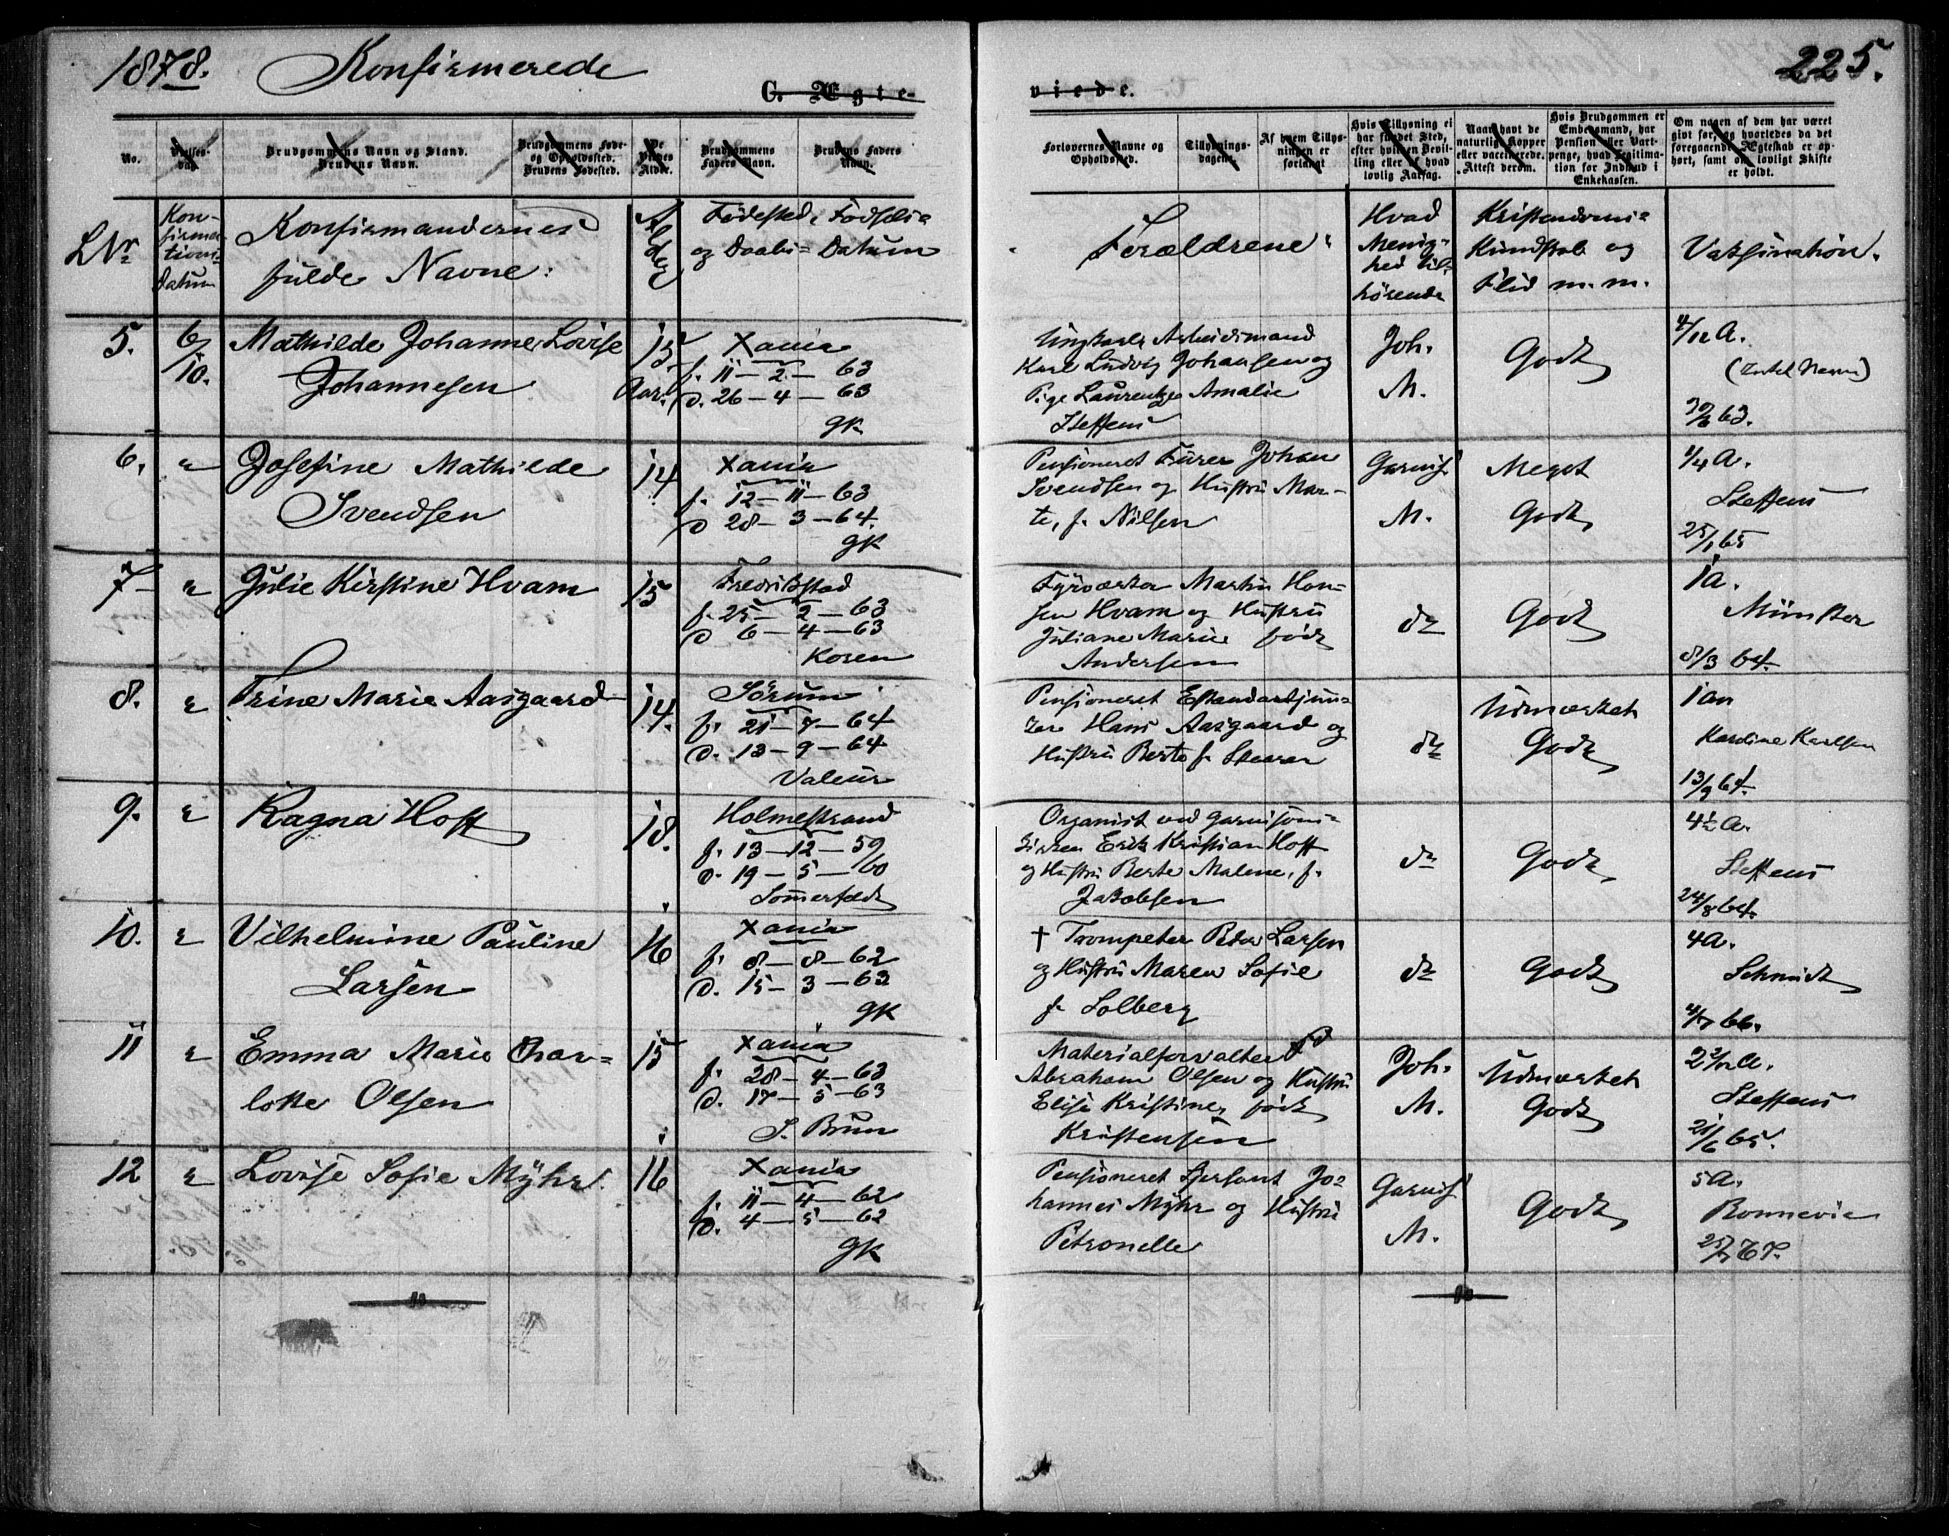 1878. Konfirmerede
225.
C. Ægte-
viede.
No.
Vielses-
dag.
Brudgommens Navn og Stand.
Brudens Navn.
Brudgommens Føde-
og Opholdssted.
Brudens Fødested.
De
Viedes
Alder.
Brudgommens
Faders Navn.
Brudens Faders
Navn.
Forlovernes Navne og
Opholdssted.
Tillysnings-
dagen.
Af hvem Tillys-
ningen er
forlangt
Hvis Tillysning ei
har fundet Sted,
efter hvilken Bevil-
ling eller af hvad
lovlig Aarsag.
Naar havt de
naturlige Kopper
eller vaccinerede.
Attest derom.
Hvis Brudgommen er
Embedsmand, har
Pension eller Vart-
penge, hvad Legitima-
tion for Indskud i
Enkekassen.
Om nogen af dem har været
gift før, og hvorledes da det
foregaaende Ægteskab er op-
hørt, samt om lovligt Skifte
er holdt.
LNr
Kon-
firma-
tions-
datum
Konfirmandernes
fulde Navne.
Alder
Fødested, Fødsels-
og Daabs-Datum
Forældrene
Hvad
Menig-
hed til-
hørende
Kristendoms-
Kundskab og
Flid m. m.
Vaksination.
5.
6/10.
Mathilde Johanne Lovise
Johannesen
15
Aar.
Xania
f. 11 - 2 - 63
d. 26 - 4 - 63
gk
Ungkarl Arbeidsmand
Karl Ludvig Johansen og
Pige Laurentze Amalie
Steffens
Joh.
M.
Godt
4/12 A.
(Intet Navn)
30/6 63.
6.
"
Josefine Mathilde
Svendsen
14
Xania
f. 12 - 11 - 63
d 28 - 3 - 64.
gk
Pensioneret Furer Johan
Svendsen og Hustru Mar-
te, f. Nilsen
Garnis.
M.
Meget
Godt
1/4 A.
Steffens
25/1 65
7
"
Julie Kirstine Hvam
15
Fredrikstad
f. 25 - 2 - 63
d 6 - 4 - 63
Koren
Fyrværker Martin Han-
sen Hvam og Hustru
Juliane Marie født
Andersen
do
Godt
1 a.
Münster
8/3 64.
8.
"
Trine Marie Aasgaard
14.
Sørum
f. 21 - 7 - 64
d. 13 - 9 - 64
Valeur
Pensioneret Estandardjun-
ker Hans Aasgaard og
Hustru Berte f. Steeren
do
Udmærket
Godt
1 an
Karoline Karlsen
13/9 64.
9.
"
Ragna Hoff
18.
Holmestrand
f. 13 - 12 - 59
d. 19 - 5 - 60
Sømerfeldt
Organist ved Garnisons-
kirken Erik Kristian Hoff
og Hustru Berte Malene, f.
Jakobsen
do
Godt
4½ A.
Steffens
24/8 64.
10.
"
Vilhelmine Pauline
Larsen
16
Xania
f. 8 - 8 - 62
d. 15 - 3 - 63
gk
† Trompeter Peder Larsen
og Hustru Maren Sofie
f. Solberg
do
Godt
4 A.
Schmidt
4/7 66.
11
"
Emma Marie Char-
lotte Olsen
15
Xania
f. 28 - 4 - 63
d. 17 - 5 - 63
S. Brun
Materialforvalter
Abraham Olsen og Hustru
Elise Kristine, født
Kristensen
Joh.
M.
Udmærket
Godt
2 2/12 A.
Steffens
21/6 65.
12
"
Lovise Sofie Myhr.
16
Xania
f. 11 - 4 - 62
d. 4 - 5 - 62
gk
Pensioneret Sersant Jo-
hannes Myhr og Hustru
Petronelle
Garnis.
M.
Godt
5 A.
Bonnevie
25/7 67.